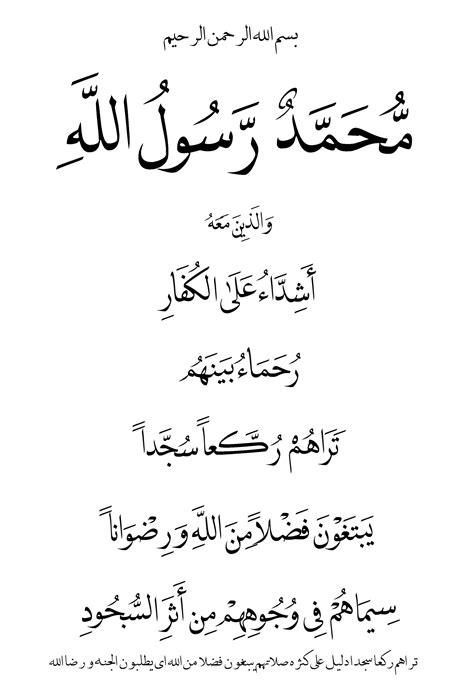 بسم الله الرحمن الرحيم
مُّحَمَّدٌ رَّسُولُ اللَّهِ
وَالَّذِينَ مَعَهُ
أَشِدَّاءُ عَلَى الكُفَّارِ
رُحَمَاءُ بَيْنَهُمْ
تَرَاهُمْ رُكَّعاً سُجَّداً
يَبْتَغُونَ فَضْلاً مِنَ اللَّهِ وَرِضْوَاناً
سِيمَاهُمْ فِي وُجُوهِهِمْ مِن أَثَرِ السُّجُودِ
تراهم ركعا سجدا دليل على كثره صلاتهم يبتغون فضلا من الله اي يطلبون الجنه و رضا الله